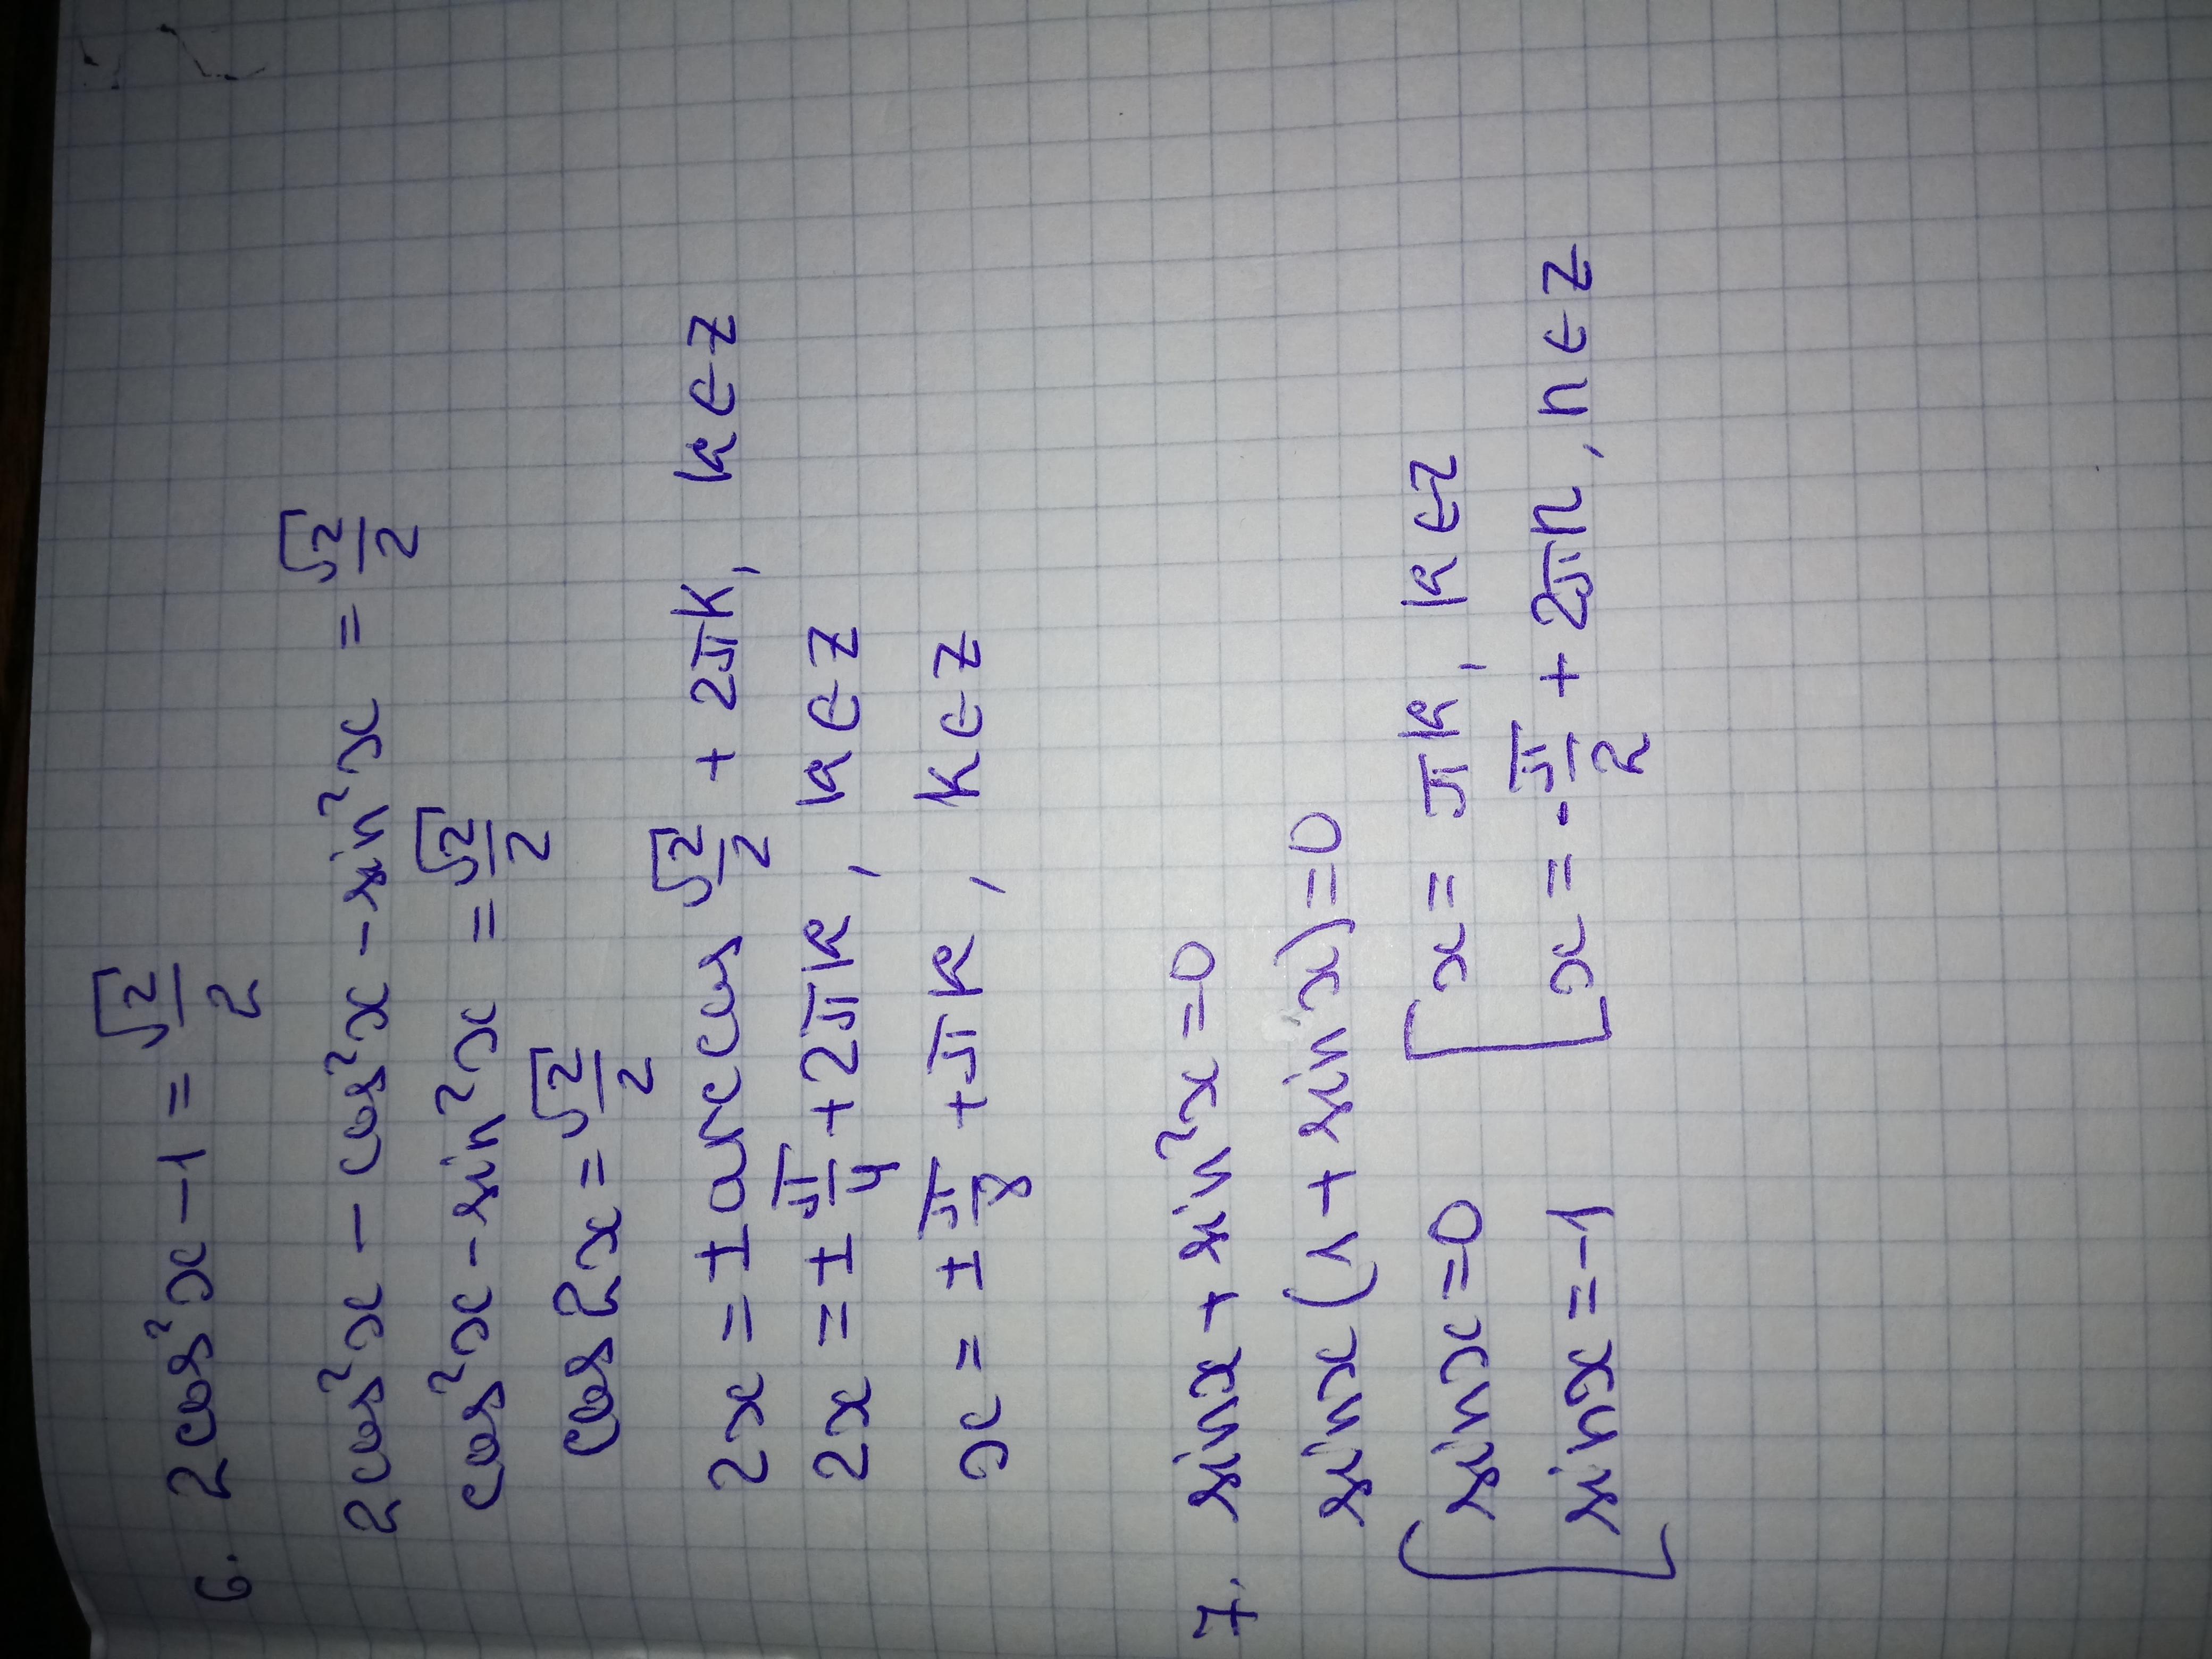 6. 2cos²x - 1 = √2/2
2cos²x - cos²x - sin²x = √2/2
cos²x - sin²x = √2/2
cos2x = √2/2
2x = ± arccos √2/2 + 2πk, k∈Z
2x = ± π/4 + 2πk, k∈Z
x = ± π/8 + πk, k∈Z
7. sinx + sin²x = 0
sinx (1 + sinx) = 0
[ sinx = 0 [ x = πk, k∈Z
sinx = -1 x = - π/2 + 2πn, n∈Z